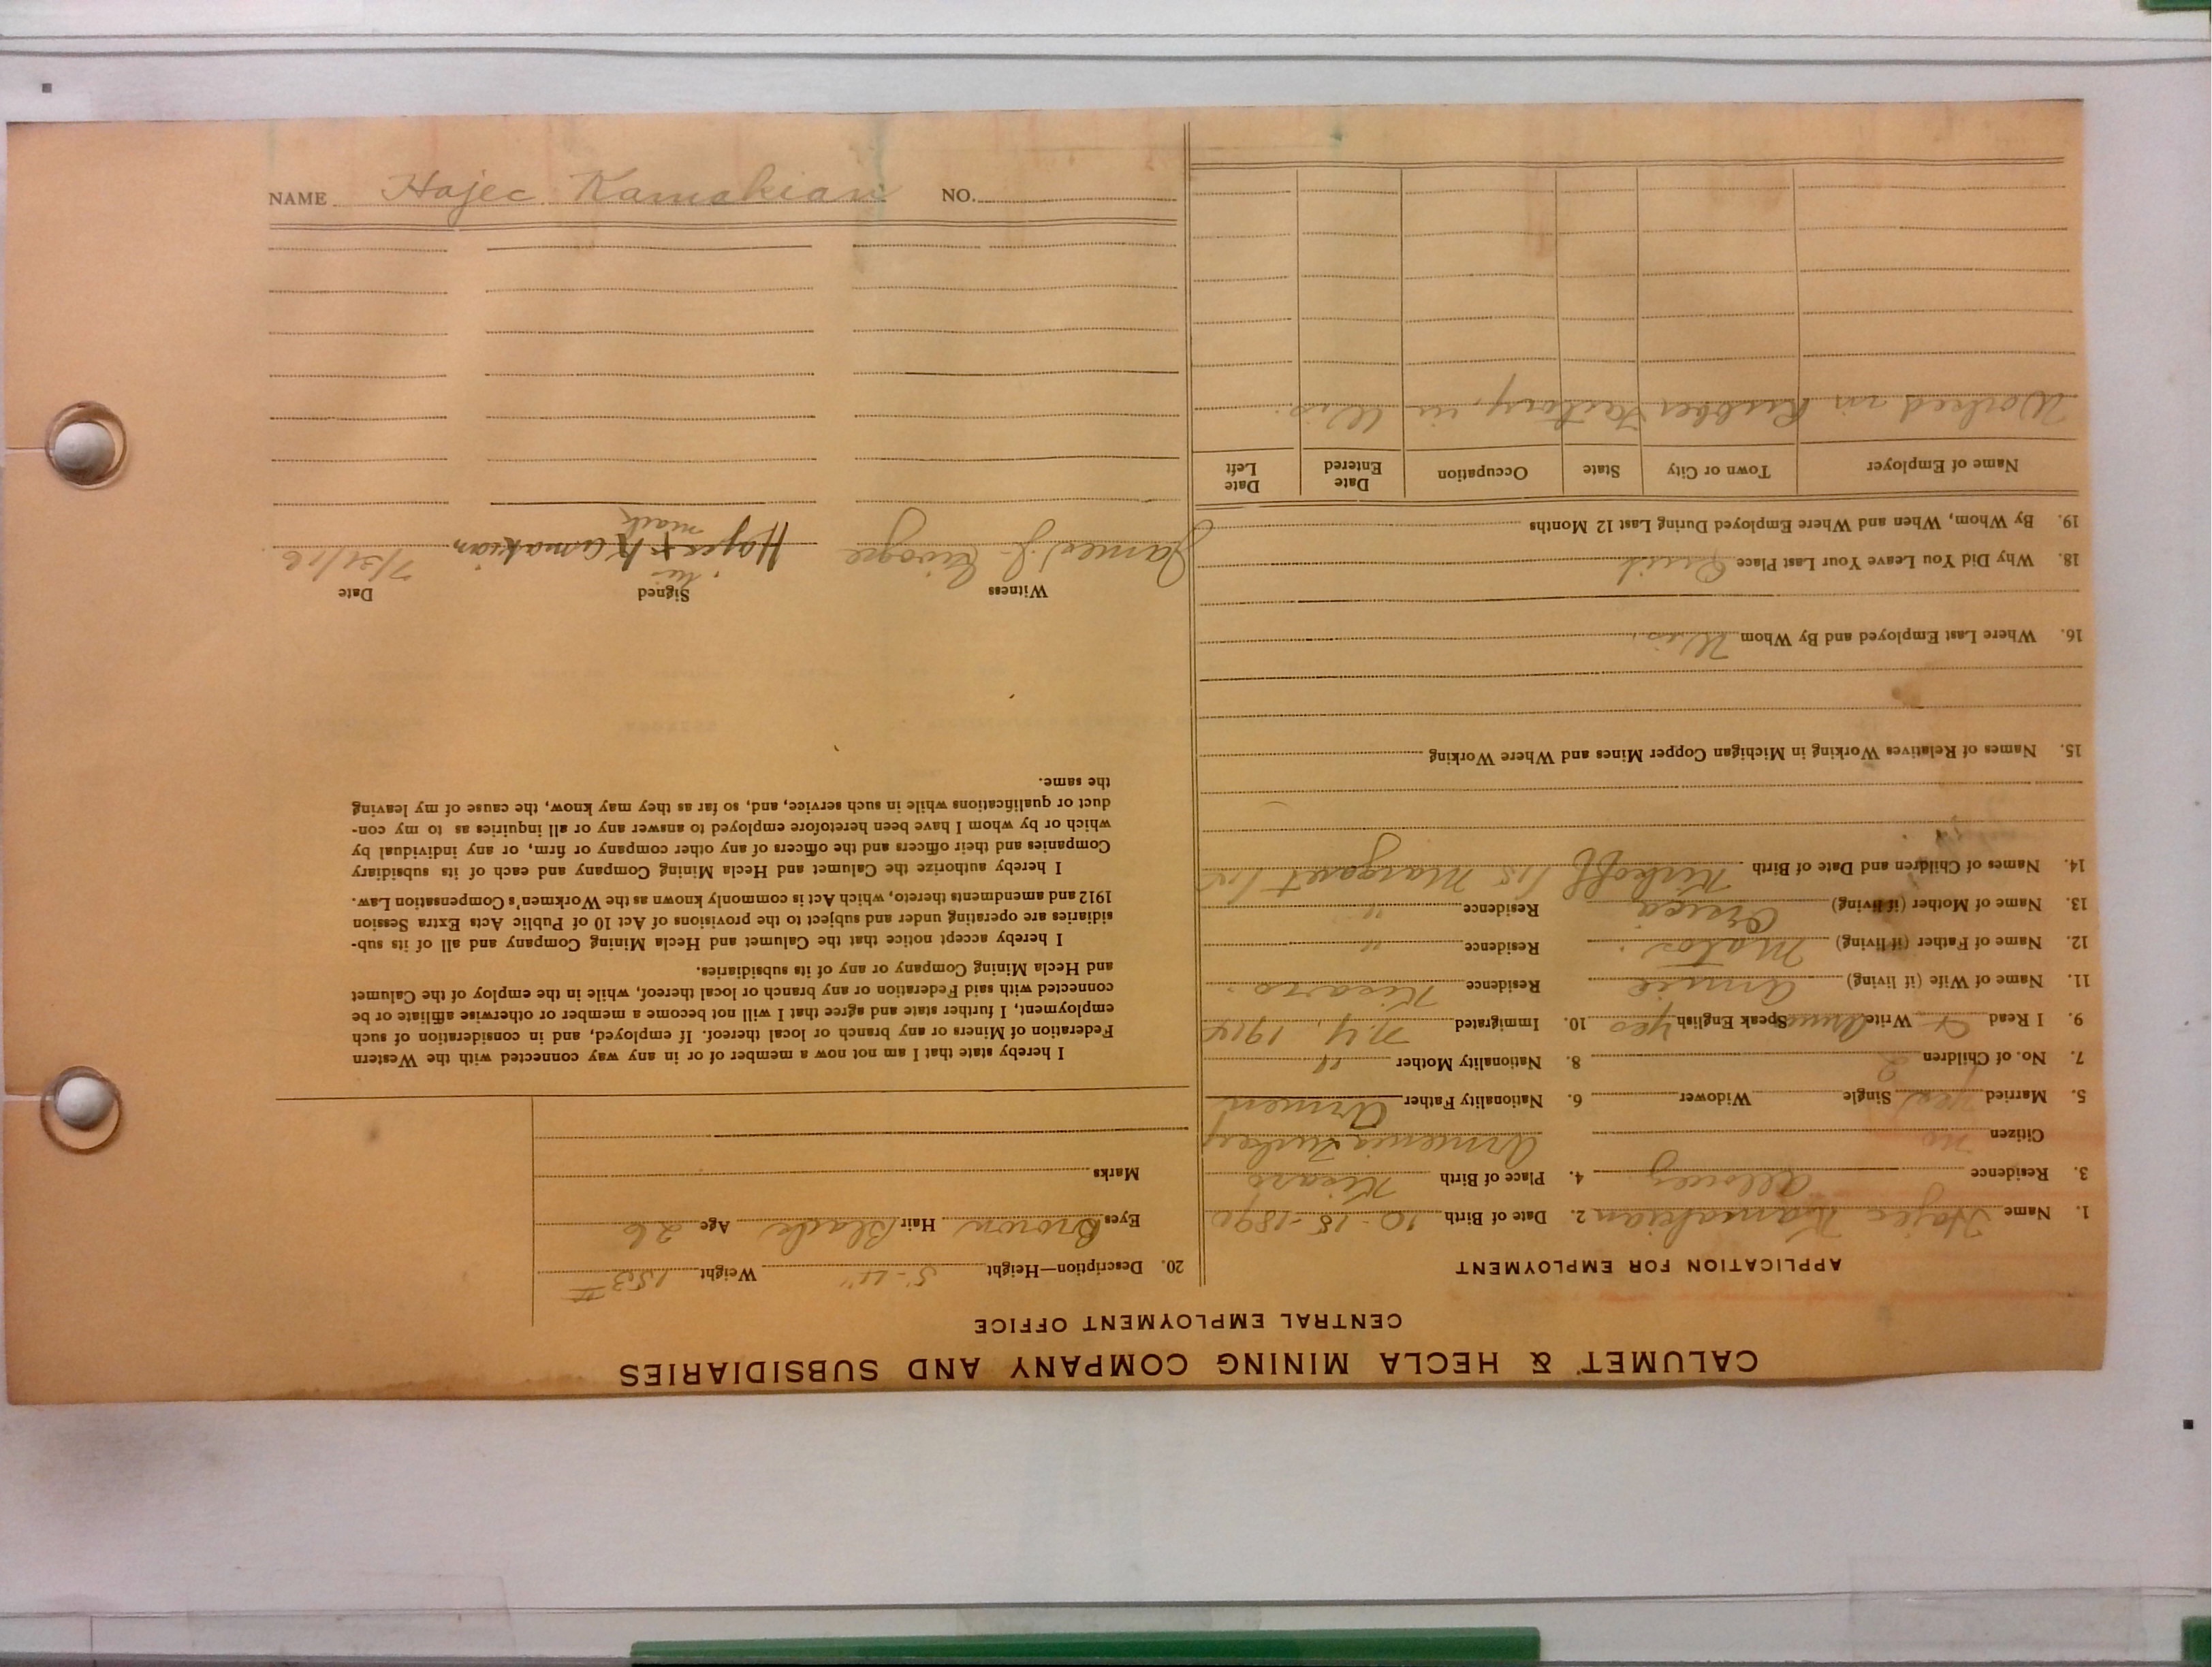 CALUMET & HECLA MINING COMPANY AND SUBSIDIARIES
CENTRAL EMPLOYMENT OFFICE
APPLICATION FOR EMPLOYMENT
1. Name Hajec Kamakian 2. Date of Birth 10-15-1890
3. Residence Allouez 4. Place of Birth Kisaro
Citizen no Armenia Turkey
5. Married yes Single Widower 6. Nationality Father Armen
7. No. of Children 2 8. Nationality Mother "
9. I Read Write Speak English yes 10. Immigrated N.Y. 1914
11. Name of Wife (if living) Annie Residence Kisaro.
12. Name of Father (if living) Matos. Residence "
13. Name of Mother (if living) Residence "
14. Names of Children and Date of Birth Margaret
15. Names of Relatives Working in Michigan Copper Mines and Where Working
16. Where Last Employed and By Whom Wis.
18. Why Did You Leave Your Last Place Quit
19. By Whom, When and Where Employed During Last 12 Months
Name of Employer Town or City State Occupation Date Entered Date Left
Worked in Rubber Factory, in Wis.
20. Description—Height 5-4" Weight 153#
Eyes Brown Hair Black Age 26
Marks
I hereby state that I am not now a member of or in any way connected with the Western
Federation of Miners or any branch or local thereof. If employed, and in consideration of such
employment, I further state and agree that I will not become a member or otherwise affiliate or be
connected with said Federation or any branch or local thereof, while in the employ of the Calumet
and Hecla Mining Company or any of its subsidiaries.
I hereby accept notice that the Calumet and Hecla Mining Company and all of its sub-
sidiaries are operating under and subject to the provisions of Act 10 of Public Acts Extra Session
1912 and amendments thereto, which Act is commonly known as the Workmen's Compensation Law.
I hereby authorize the Calumet and Hecla Mining Company and each of its subsidiary
Companies and their officers and the officers of any other company or firm, or any individual by
which or by whom I have been heretofore employed to answer any or all inquiries as to my con-
duct or qualifications while in such service, and, so far as they may know, the cause of my leaving
the same.
Witness Signed Date
his
James J. Hajec + Kamakian 7/31/16
mark
NAME Hajec Kamakian NO.